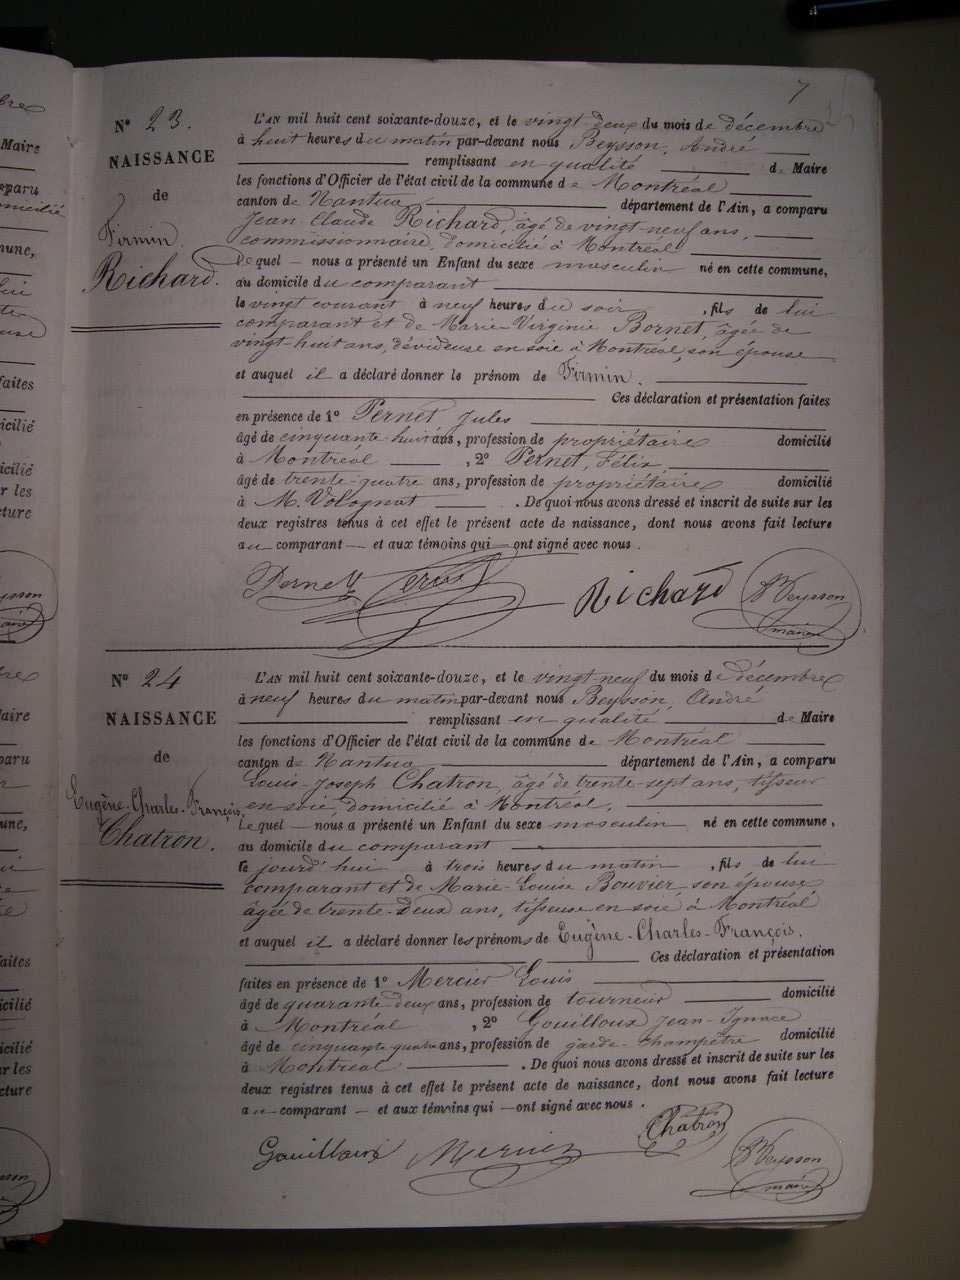 7
Nº 23.
NAISSANCE
de
Firmin
Richard.
L'AN mil huit cent soixante-douze, et le vingt deux du mois de décembre
à huit heures du matin par-devant nous Beysson, André
remplissant en qualité de Maire
les fonctions d'Officier de l'état civil de la commune de Montréal
canton de Nantua département de l'Ain, a comparu
Jean-Claude Richard, âgé de vingt-neuf ans,
commissionnaire, domicilié à Montréal
Lequel nous a présenté un Enfant du sexe masculin né en cette commune,
au domicile du comparant
le vingt courant à neuf heures du soir, fils de lui
comparant et de Marie-Virginie Bornet, âgée de
vingt-huit ans, dévideuse en soie à Montréal, son épouse
et auquel il a déclaré donner le prénom de Firmin.
Ces déclaration et présentation faites
en présence de 1º Pernet Jules
âgé de cinquante-huit ans, profession de propriétaire domicilié
à Montréal, 2º Pernet, Félix,
âgé de trente-quatre ans, profession de propriétaire domicilié
à M. Volognat. De quoi nous avons dressé et inscrit de suite sur les
deux registres tenus à cet effet le présent acte de naissance, dont nous avons fait lecture
au comparant — et aux témoins qui — ont signé avec nous.
Pernet Richard Beysson
maire
Nº 24
NAISSANCE
de
Eugène-Charles-François.
Chatron.
L'AN mil huit cent soixante-douze, et le vingt-neuf du mois de décembre
à neuf heures du matin par-devant nous Beysson, André
remplissant en qualité de Maire
les fonctions d'Officier de l'état civil de la commune de Montréal
canton de Nantua département de l'Ain, a comparu
Louis-Joseph Chatron, âgé de trente-sept ans, tisseur
en soie, domicilié à Montréal,
Lequel — nous a présenté un Enfant du sexe masculin né en cette commune,
au domicile du comparant
le jourd'hui à trois heures du matin, fils de lui
comparant et de Marie-Louise Bouvier, son épouse
âgée de trente-deux ans, tisseuse en soie à Montréal
et auquel il a déclaré donner les prénoms de Eugène-Charles-François.
Ces déclaration et présentation
faites en présence de 1º Mercier Louis
âgé de quarante-deux ans, profession de tourneur domicilié
à Montréal, 2º Gouilloux Jean-Ignace
âgé de cinquante quatre ans, profession de garde-champêtre domicilié
à Montréal. De quoi nous avons dressé et inscrit de suite sur les
deux registres tenus à cet effet le présent acte de naissance, dont nous avons fait lecture
au comparant — et aux témoins qui — ont signé avec nous.
Gouilloux Mercier Chatron Beysson
maire